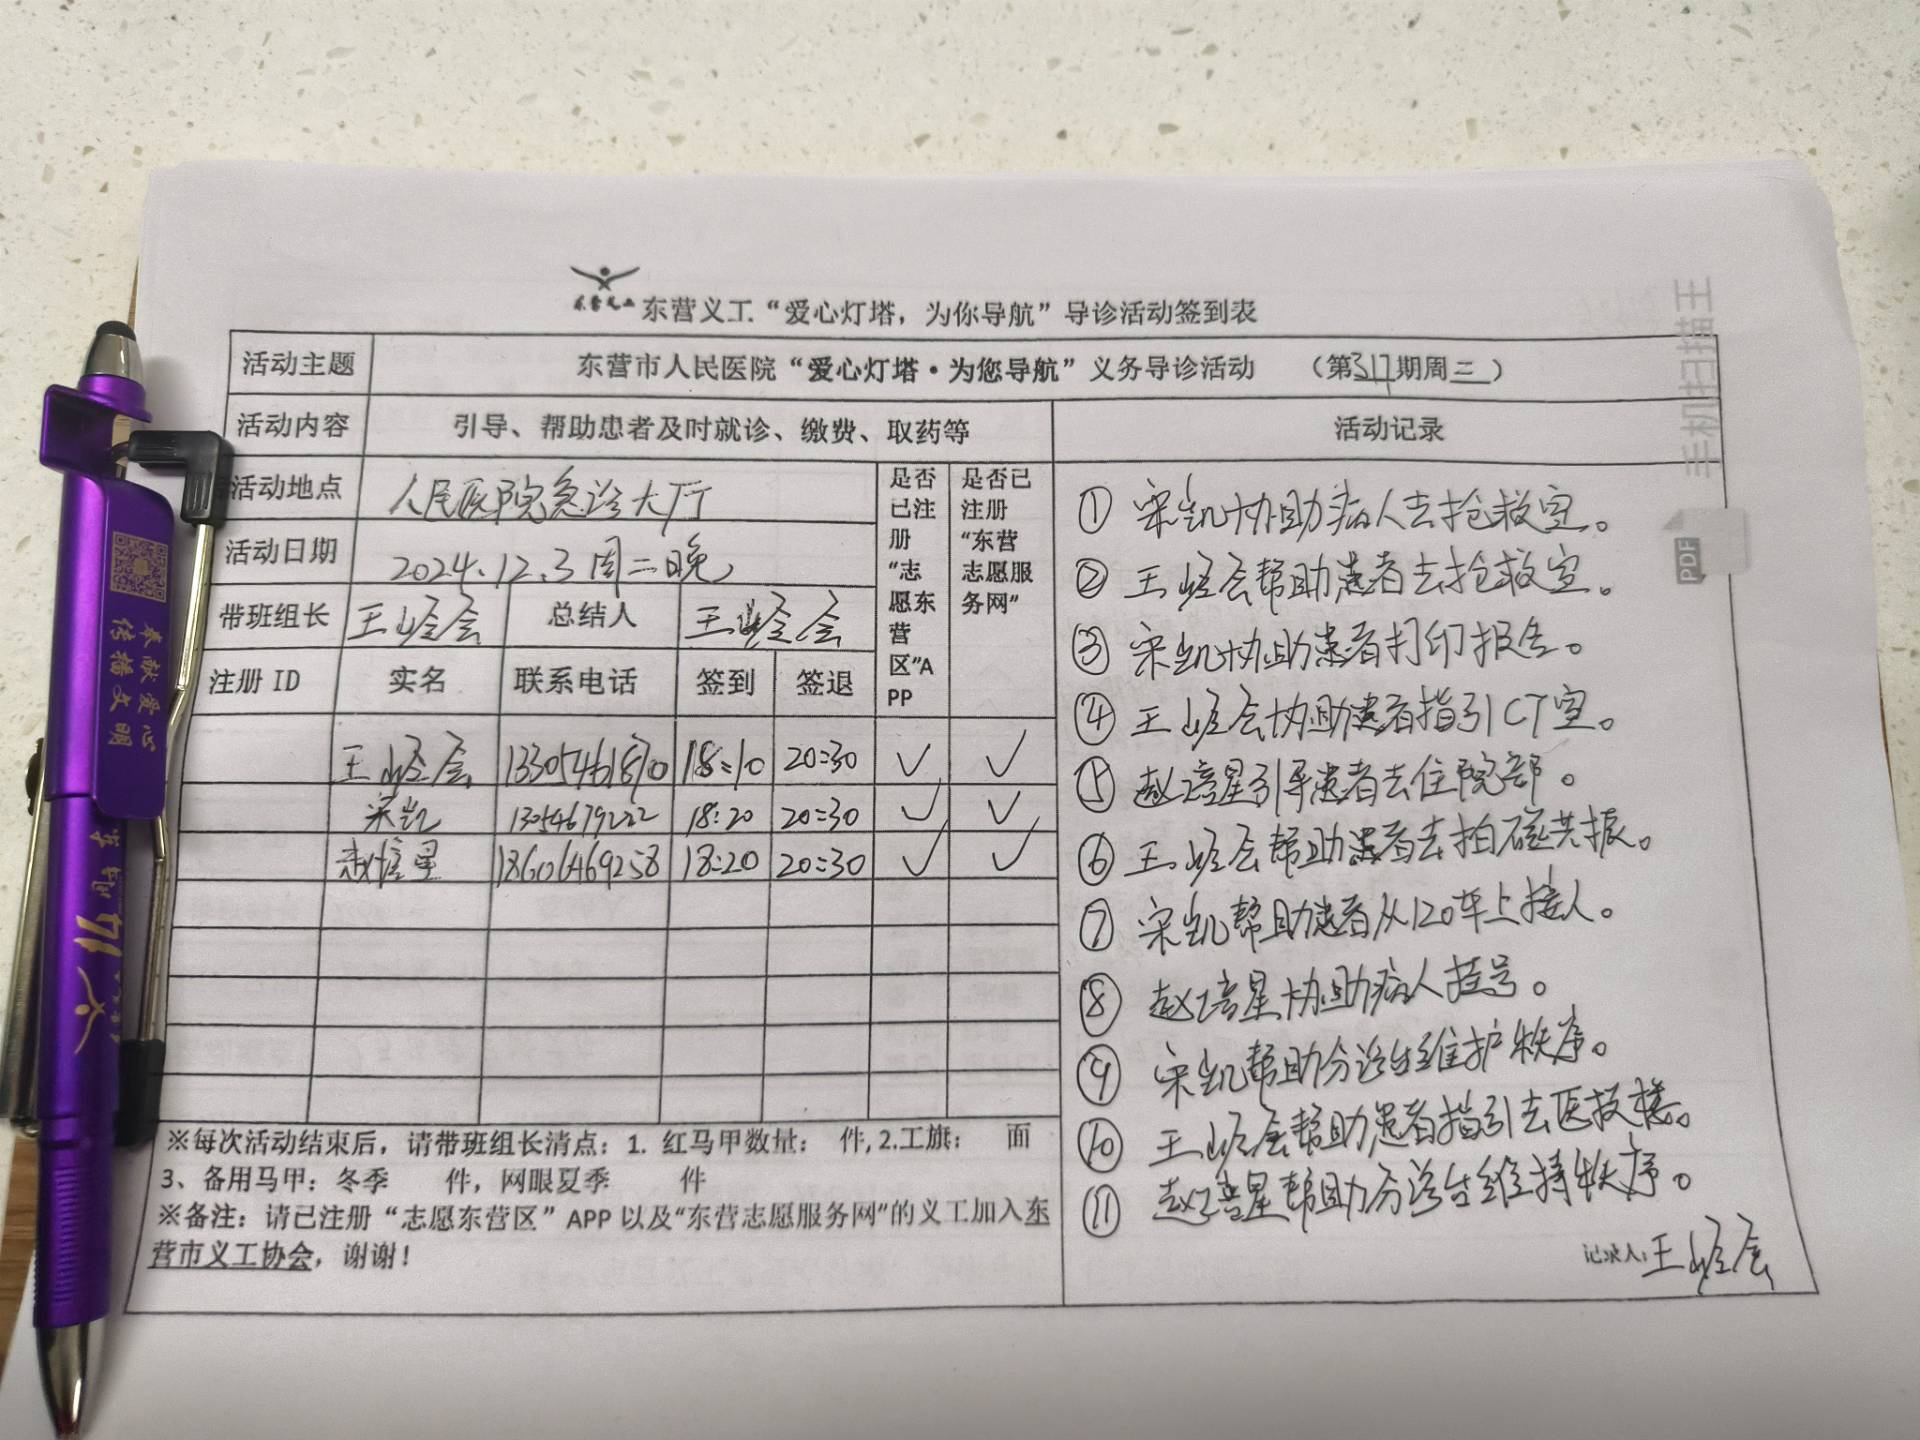 东营义工 东营义工“爱心灯塔，为你导航”导诊活动签到表
活动主题 东营市人民医院“爱心灯塔·为您导航”义务导诊活动 （第317期周二）
活动内容 引导、帮助患者及时就诊、缴费、取药等 活动记录
活动地点 人民医院急诊大厅
活动日期 2024.12.3 周二晚
带班组长 王峪会 总结人 王峪会
是否已注册“志愿东营区”APP
是否已注册“东营志愿服务网”
注册 ID 实名 联系电话 签到 签退
王峪会 13305461870 18:10 20:30 ✓ ✓
宋凯 13054679222 18:20 20:30 ✓ ✓
赵信星 18606469258 18:20 20:30 ✓ ✓
① 宋凯协助病人去抢救室。
② 王峪会帮助患者去抢救室。
③ 宋凯协助患者打印报告。
④ 王峪会协助患者指引CT室。
⑤ 赵信星引导患者去住院部。
⑥ 王峪会帮助患者去拍磁共振。
⑦ 宋凯帮助患者从120车上接人。
⑧ 赵信星协助病人挂号。
⑨ 宋凯帮助分诊台维护秩序。
⑩ 王峪会帮助患者指引去医技楼。
⑪ 赵信星帮助分诊台维持秩序。
记录人：王峪会
※每次活动结束后，请带班组长清点：1. 红马甲数量： 件，2.工旗： 面
3、备用马甲：冬季 件，网眼夏季 件
※备注：请已注册“志愿东营区”APP 以及“东营志愿服务网”的义工加入东
营市义工协会，谢谢！
手机扫描王
PDF
奉献爱心
传播文明